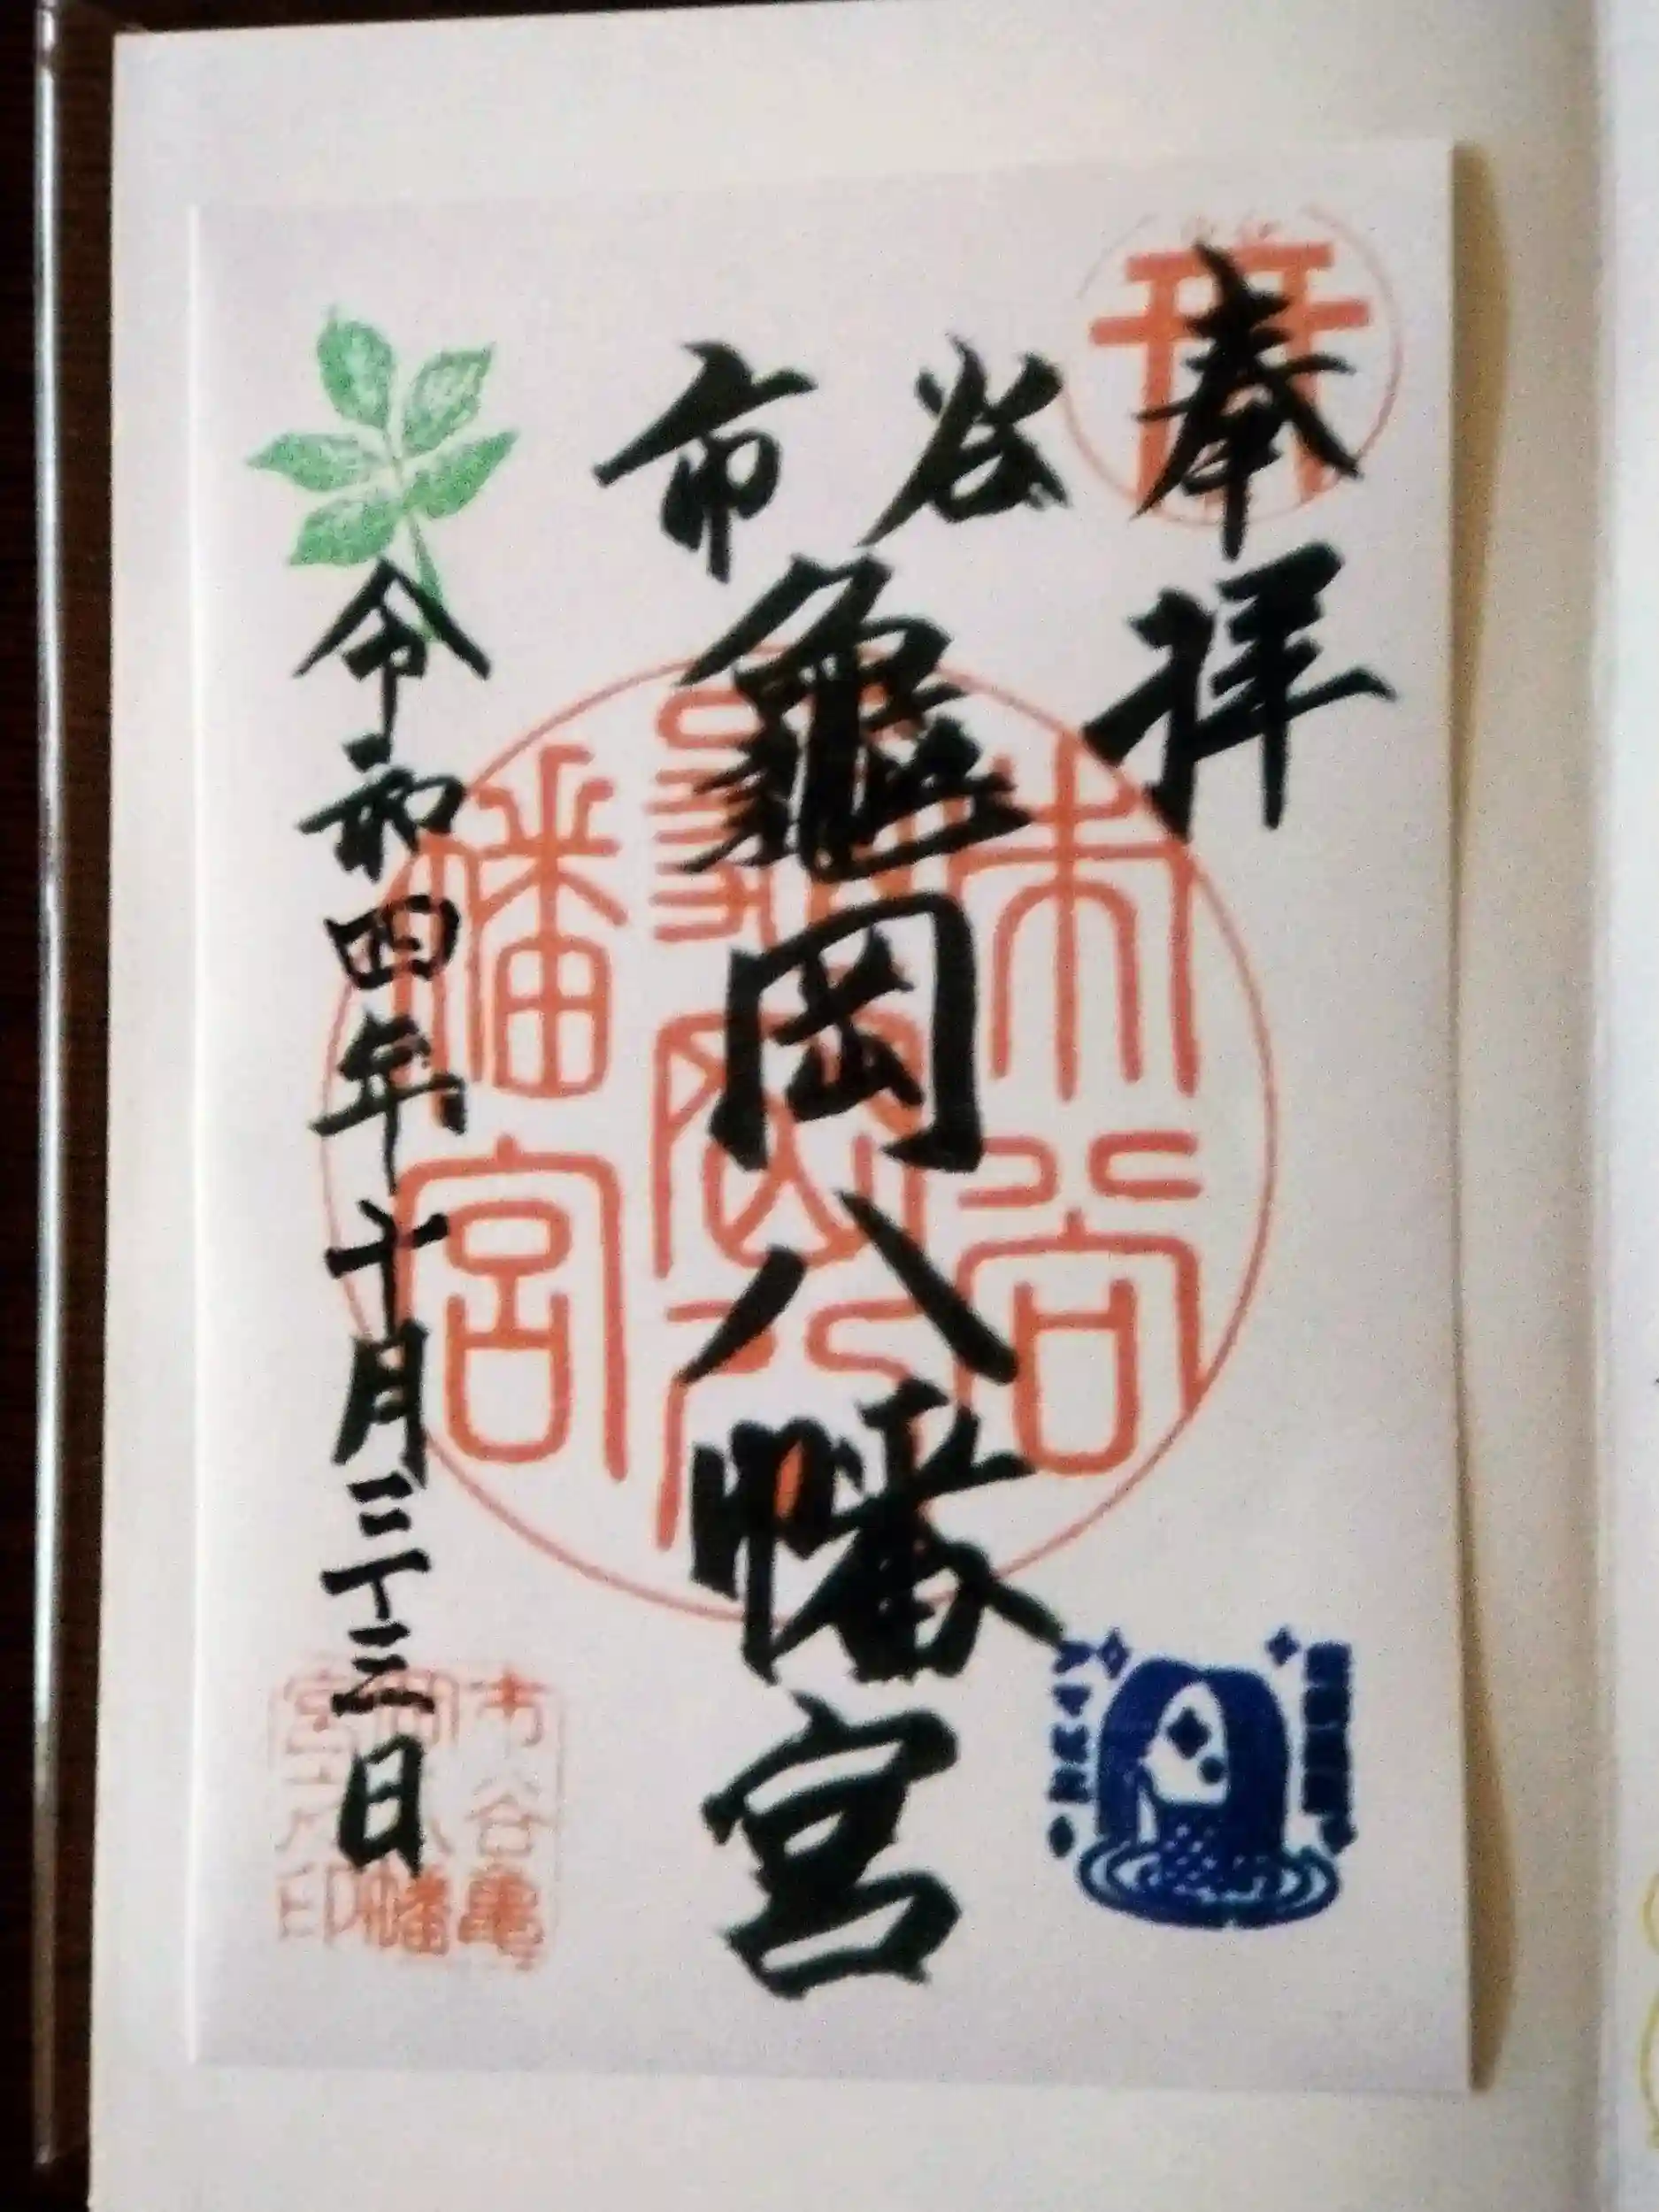 奉拝
市谷
龜岡八幡宮
令和四年十月二十三日
市谷
龜岡八
幡宮
市谷亀
岡八幡
宮之印